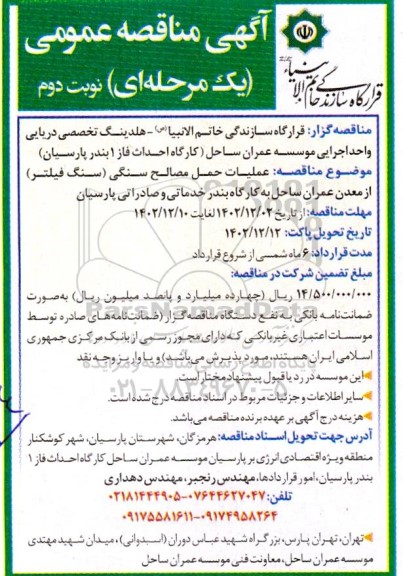 آگهی مناقصه عمومی
(یک مرحله‌ای) نوبت دوم
قرارگاه سازندگی خاتم الانبیاء
مناقصه‌گزار: قرارگاه سازندگی خاتم الانبیا (ص) - هلدینگ تخصصی دریایی
واحد اجرایی موسسه عمران ساحل (کارگاه احداث فاز ۱ بندر پارسیان)
موضوع مناقصه: عملیات حمل مصالح سنگی (سنگ فیلتر)
از معدن عمران ساحل به کارگاه بندر خدماتی و صادراتی پارسیان
مهلت مناقصه: از تاریخ ۱۴۰۲/۱۲/۰۲ لغایت ۱۴۰۲/۱۲/۱۰
تاریخ تحویل پاکت: ۱۴۰۲/۱۲/۱۲
مدت قرارداد: ۶ ماه شمسی از شروع قرارداد
مبلغ تضمین شرکت در مناقصه:
۱۴/۵۰۰/۰۰۰/۰۰۰ ریال (چهارده میلیارد و پانصد میلیون ریال) به‌صورت
ضمانت‌نامه بانکی به نفع دستگاه مناقصه گزار (ضمانت‌نامه‌های صادره توسط
موسسات اعتباری غیربانکی که دارای مجوز رسمی از بانک مرکزی جمهوری
اسلامی ایران هستند، مورد پذیرش می‌باشد) و یا واریز وجه نقد
این موسسه در رد یا قبول پیشنهاد مختار است.
سایر اطلاعات و جزئیات مربوط در اسناد مناقصه درج شده است.
هزینه درج آگهی بر عهده برنده مناقصه می‌باشد.
آدرس جهت تحویل اسناد مناقصه: هرمزگان، شهرستان پارسیان، شهر کوشکنار
منطقه ویژه اقتصادی انرژی بر پارسیان موسسه عمران ساحل کارگاه احداث فاز ۱
بندر پارسیان، امور قراردادها، مهندس رنجبر، مهندس دهداری
تلفن: ۰۷۶۴۴۶۲۷۰۴۷-۰۲۱۸۱۴۴۴۹۰۵
۰۹۱۷۴۹۵۸۲۶۴-۰۹۱۷۵۵۸۱۶۱۱
تهران، تهران پارس، بزرگراه شهید عباس دوران (استوانی)، میدان شهید مهتدی
موسسه عمران ساحل، معاونت فنی موسسه عمران ساحل